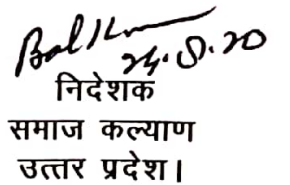 24.8.20
निदेशक
समाज कल्याण
उत्तर प्रदेश।